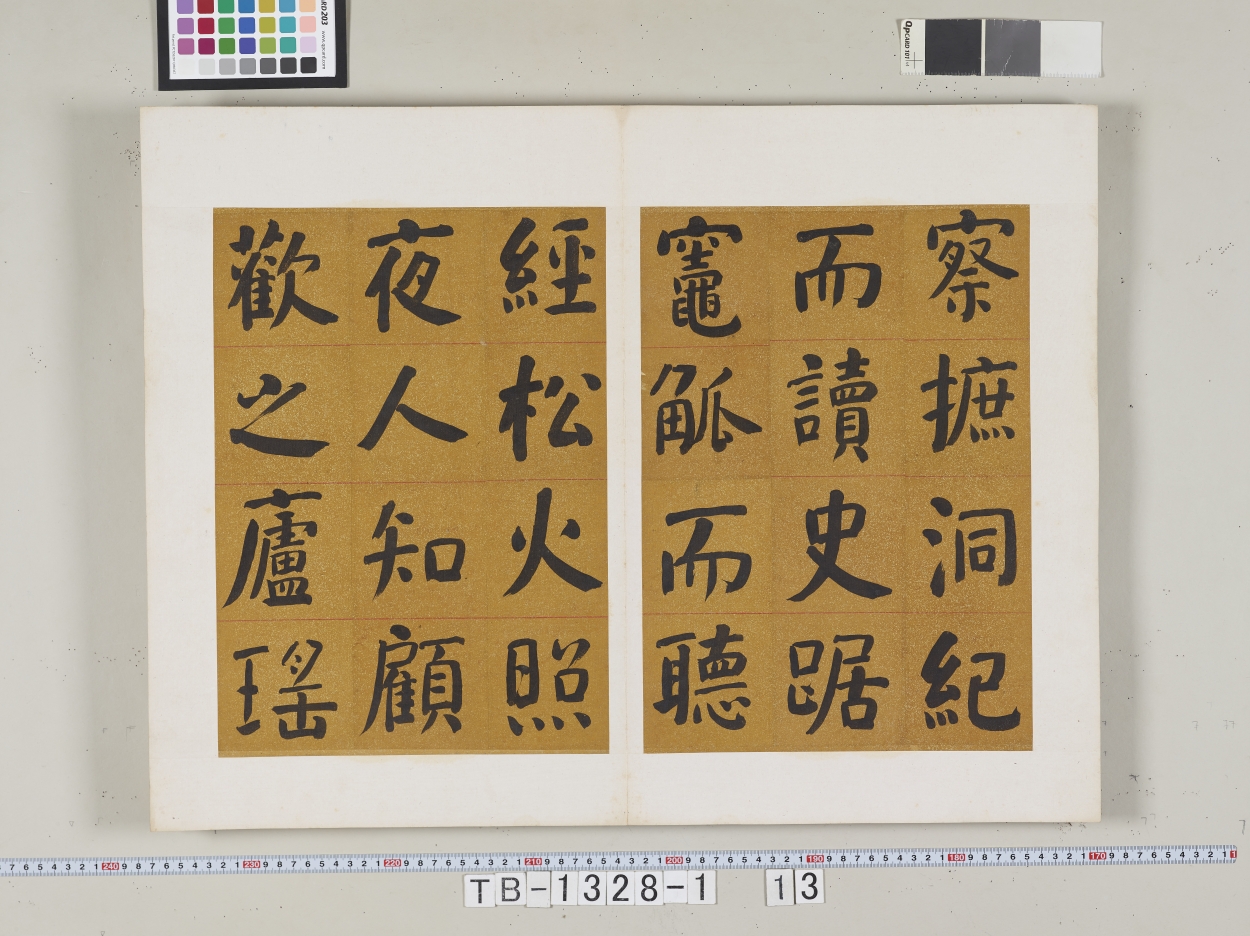 察摭洞紀
而讀史踞
竈觚而聽
經松火照
夜人知顧
歡之廬瑤
TB-1328-1 13